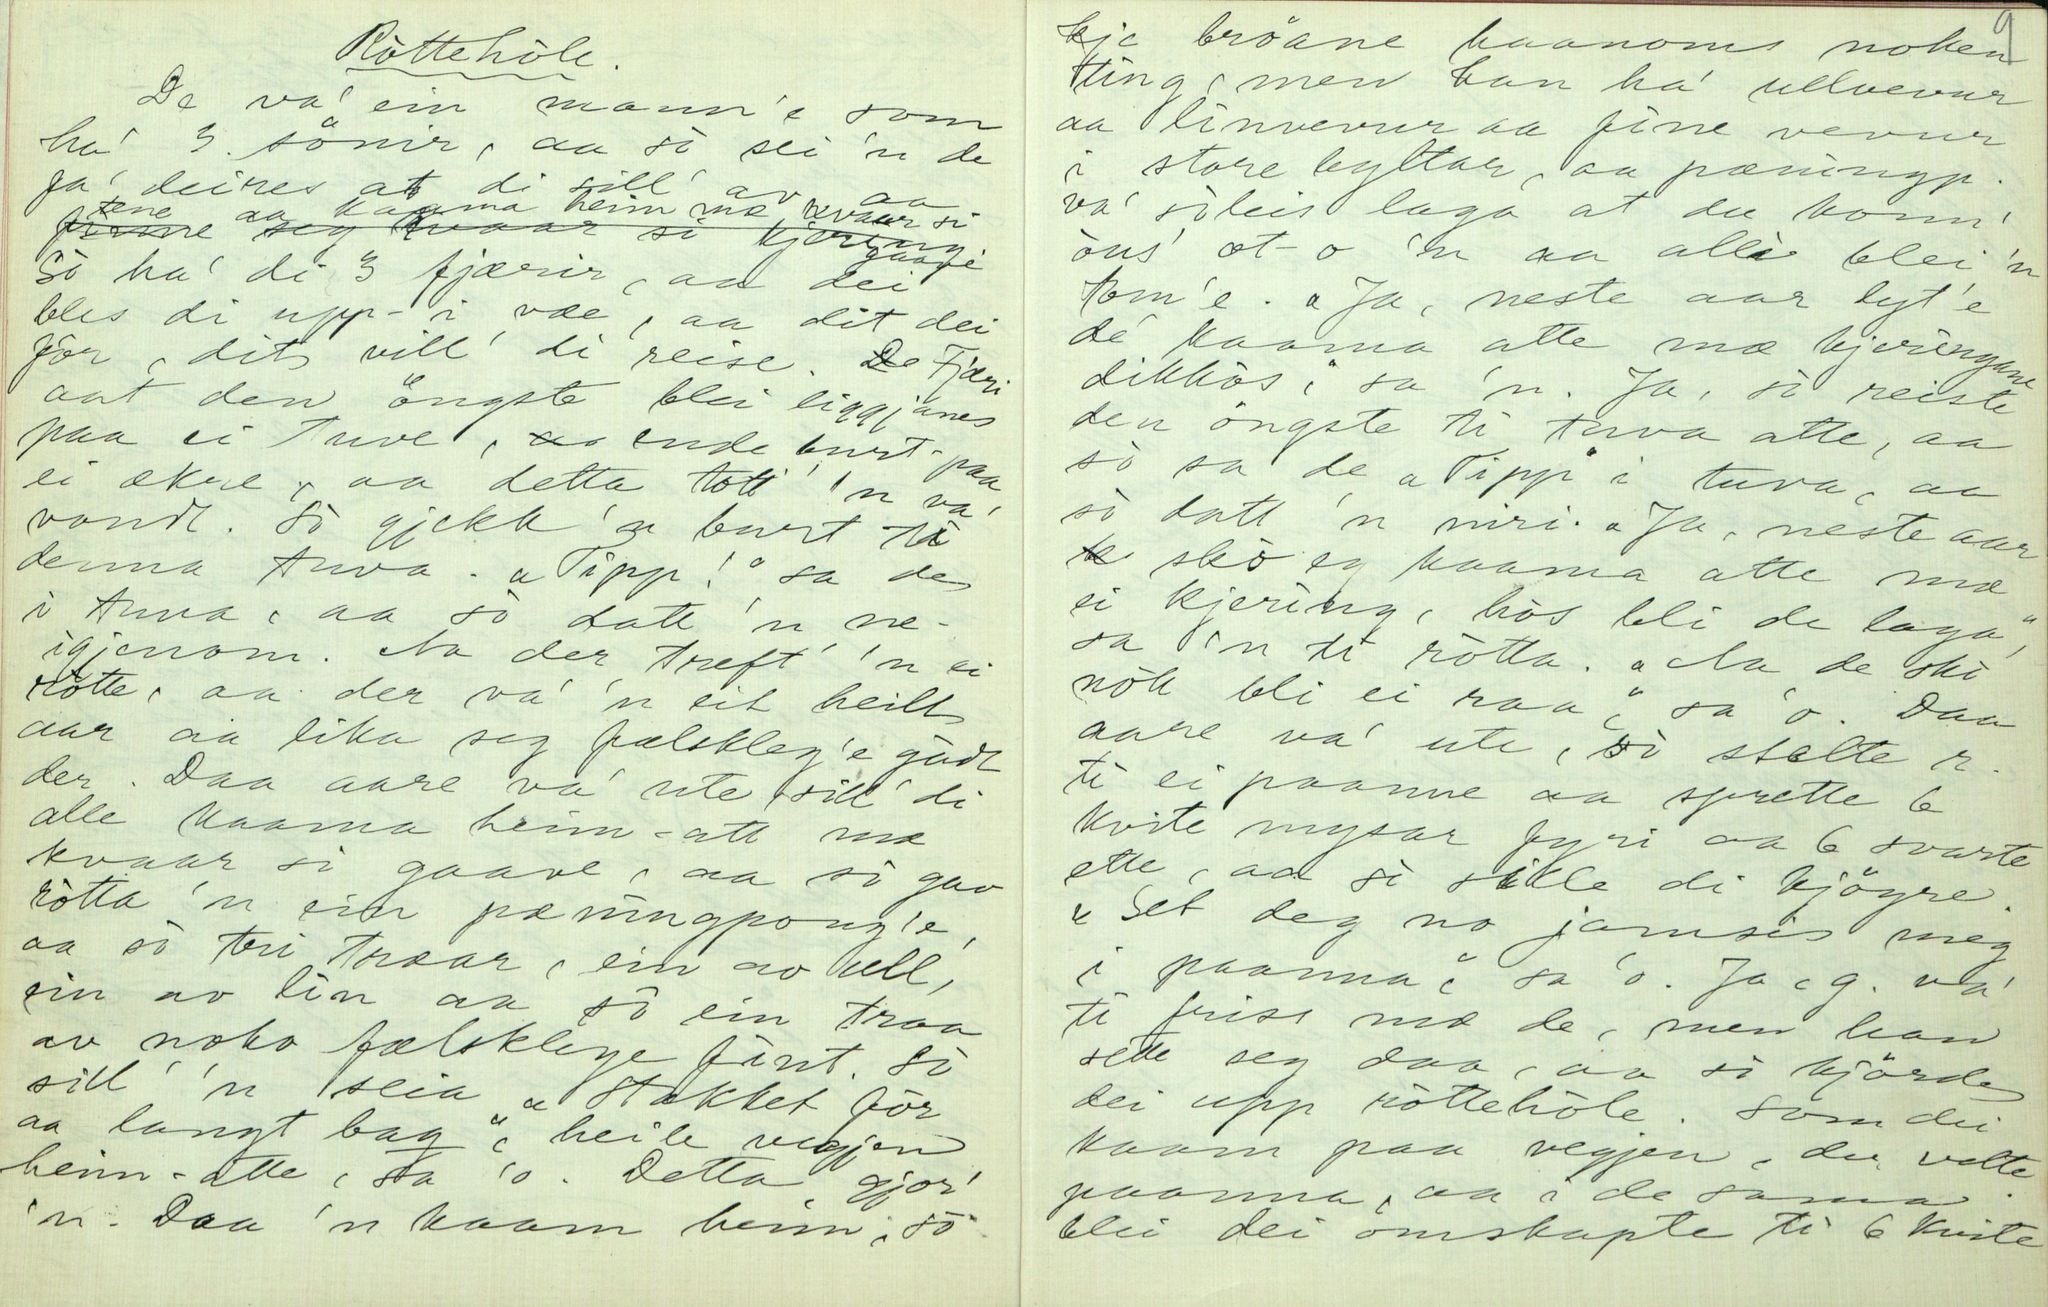 Röttehöle.
De va' ein mann'e som
ha' 3. sönir, aa sò sei 'n de
fa' deires at di sill' av aa
tene aa kaama heim mæ kvaar si
finne seg kvaar si kjering
gaave
Sò ha' di 3 fjærir, aa dei
bles di upp-i væe, aa dit dei
fòr, dit vill' di reise. De Fjæri
aat den öngste blei liggjanes
paa ei tuve, aa ende burt-paa
ei ækre, aa detta tott' 'n va'
vondt. Sò gjekk 'n burt ti
denna tuva. "Tipp!" sa de
i tuva, aa sò datt 'n ne-
igjenom. Aa der treft' 'n ei
rötte, aa der va' 'n eit heilt
aar aa lika seg fælskleg'e gòdt
der. Daa aare va' ute, sill' di
alle kaama heim-att mæ
kvaar si gaave, aa sò gav
ròtta 'n ein pæningpong'e,
aa sò tri traar, ein av ull,
ein av lin aa sò ein traa
av noko fælsklege fint. Sò
sill' 'n seia "Stakket fòr
aa langt bag", heile vegjen
heim-atte, sa 'o. Detta gjor'
'n. Daa 'n kaam heim, sò
9
kje bröane haanoms noken
ting, men han ha' ullvevur
aa linvevur aa fine vevur
i store byltar, aa pæningp.
va' sòleis laga at du konn'
öus' æt-o 'n aa aller blei 'n
tom'e. "Ja, neste aar lyt'e
dé kaama atte mæ kjeringane
dikkòs", sa 'n. Ja, sò reiste
den öngste ti tuva atte, aa
sò sa de "Tipp" i tuva, aa
sò datt 'n niri. "Ja, neste aar
skò eg kaama atte mæ
ei kjering, hòs bli de laga",
sa 'n ti ròtta. "Aa de skò
nòk bli ei raa", sa 'o. Daa
aare va' ute, sò stelte r.
ti ei paanne aa sprette 6
kvite mysar fyri aa 6 svarte
ette, aa sò sille di kjöyre.
"Set deg no jamsis meg
i paanna", sa 'o. Ja, g. va'
ti friss mæ de, men han
sette seg daa, aa sò kjörde
dei upp röttehöle. Som dei
kaam paa vegjen, der velte
paanna, aa i de sama
blei dei omskapte ti 6 kvite